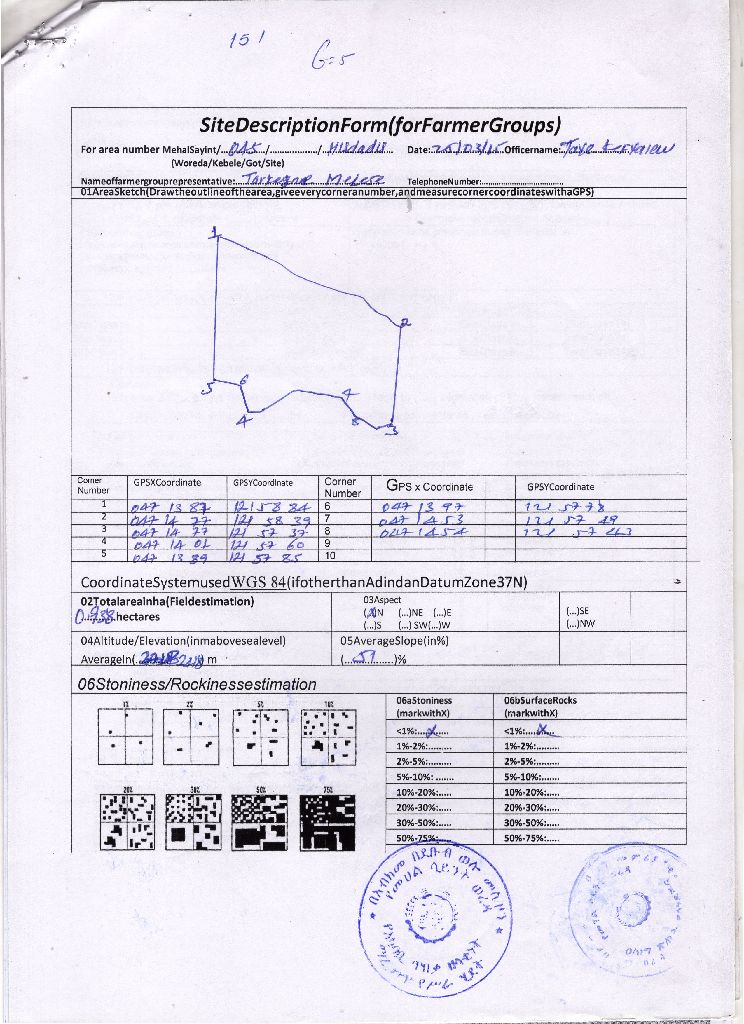 151
G=5
SiteDescriptionForm(forFarmerGroups)
For area number MehalSayint/...045.../............../... ... Date:.25/03/15.Officername:.Taye
(Woreda/Kebele/Got/Site)
Nameoffarmergrouprepresentative:..Tarkegne Melese TelephoneNumber:..............................
01AreaSketch(Drawtheoutlineofthearea,giveeverycorneranumber,andmeasurecornercoordinateswithaGPS)
1
2
5 6
4
4
8
3
Corner Number GPSXCoordinate GPSYCoordinate Corner Number GPS x Coordinate GPSYCoordinate
1 047 13 87 121 58 84 6 047 13 97 121 57 78
2 047 14 77 121 58 39 7 047 14 53 121 57 49
3 047 14 77 121 57 37 8 047 14 54 121 57 43
4 047 14 01 121 57 60 9
5 047 13 89 121 57 85 10
CoordinateSystemusedWGS 84(ifotherthanAdindanDatumZone37N)
02Totalareainha(Fieldestimation) 03Aspect
0.938.hectares (X)N (...)NE (...)E (...)SE
(...)S (...) SW(...)W (...)NW
04Altitude/Elevation(inmabovesealevel) 05AverageSlope(in%)
AverageIn( ) m (....51..........)%
06Stoniness/Rockinessestimation
1% 2% 5% 10%
20% 30% 50% 75%
06aStoniness (markwithX) 06bSurfaceRocks (markwithX)
<1%:....X.... <1%:....X....
1%-2%:......... 1%-2%:.........
2%-5%:......... 2%-5%:.........
5%-10%: ....... 5%-10%:......
10%-20%:..... 10%-20%:.....
20%-30%:..... 20%-30%:.....
30%-50%:..... 30%-50%:.....
50%-75%:..... 50%-75%:.....